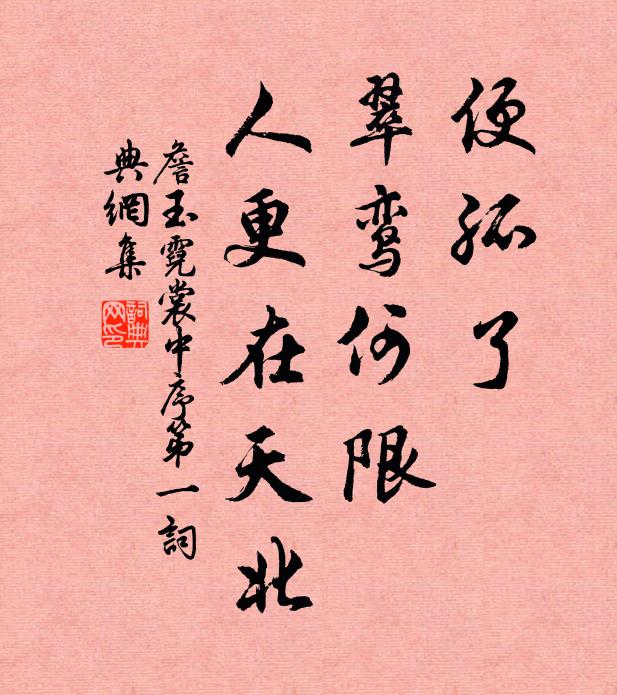 便孤了
翠鸾何限
人更在天北
詹玉霓裳中序第一詞
典網集
詞典网印